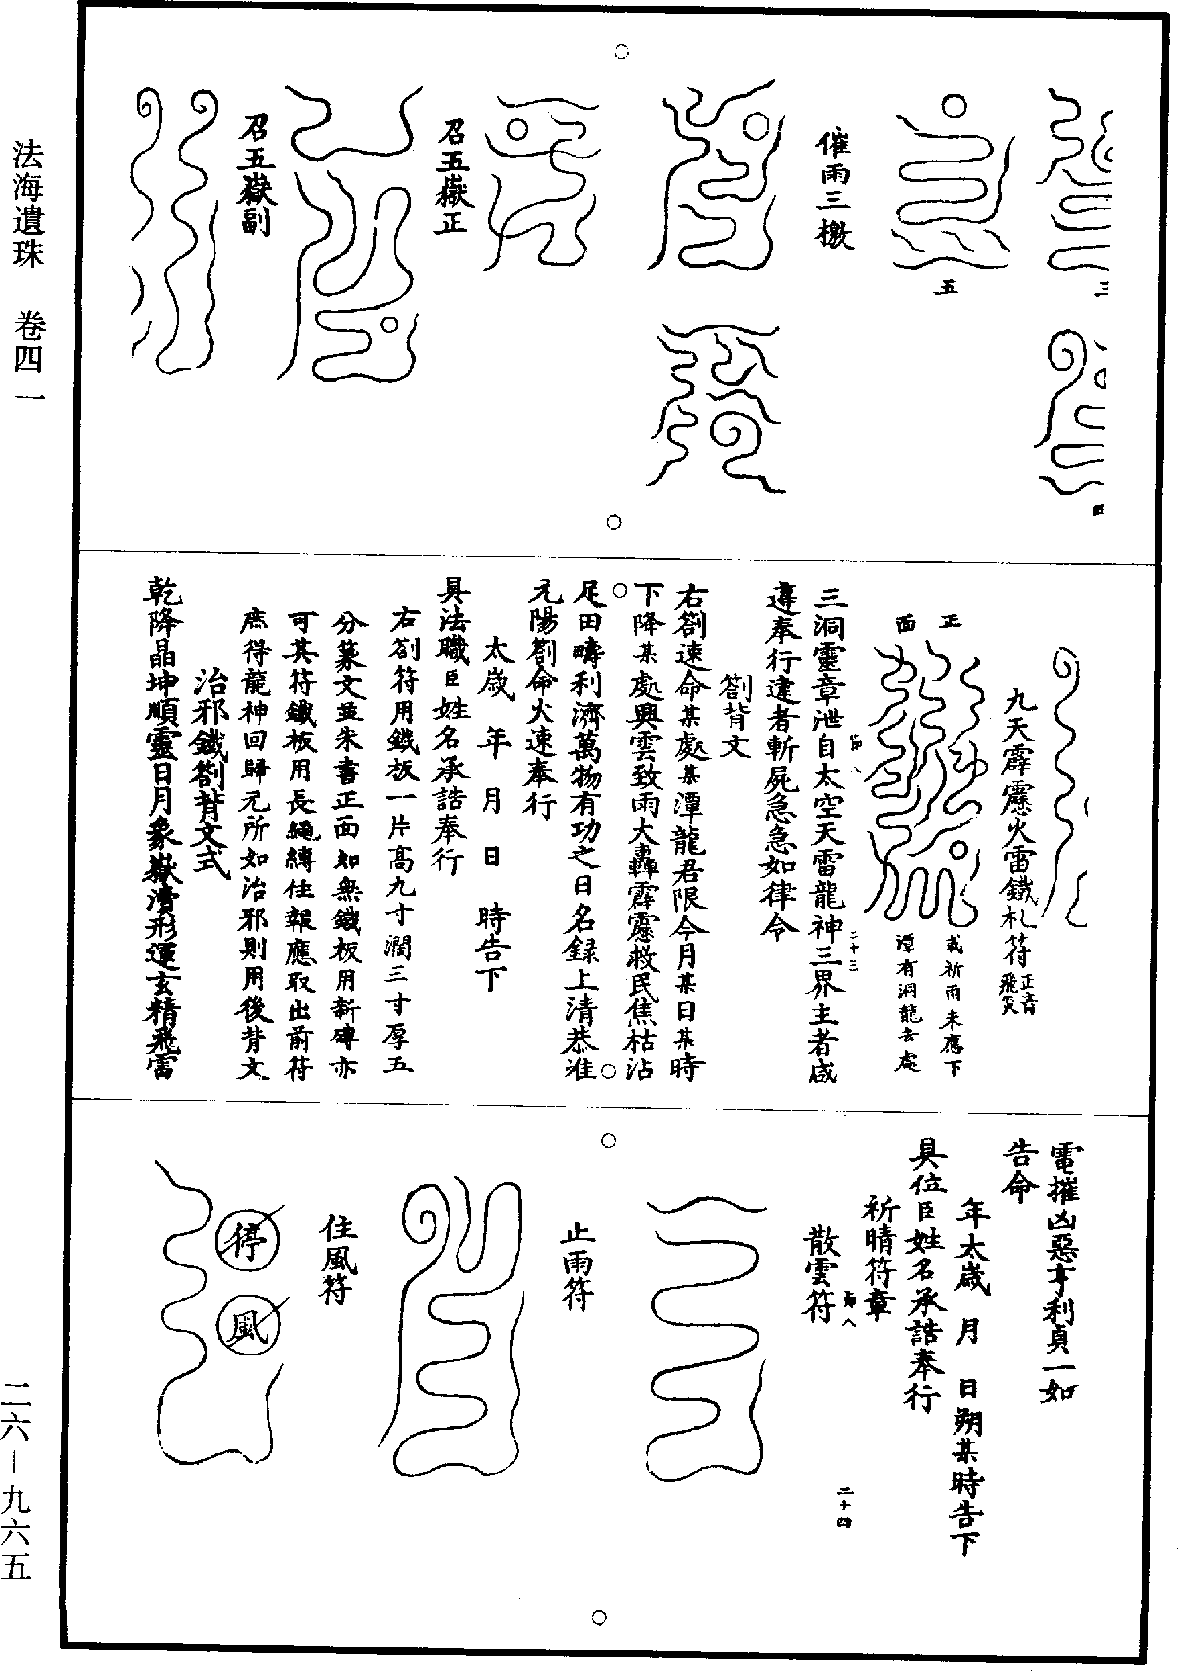 法海遺珠　卷四一
三
四
五
催雨三檄
召五嶽正
召五嶽副
九天霹靂火雷鐵札符正音飛炁
正面
或祈雨未應下
潭有洞龍去處
三洞靈章泄自太空天雷龍神三界主者咸
二十三
違奉行違者斬屍急急如律令
劄背文
右劄速命某處某潭龍君限今月某日某時
下降某處興雲致雨大轟霹靂救民焦枯沾
足田疇利濟萬物有功之日名録上清恭准
元陽劄命火速奉行
太歲　年　月　日　時告下
具法職臣姓名承誥奉行
右劄符用鐵板一片高九寸濶三寸厚五
分篆文並朱書正面如無鐵板用新磚亦
可其符鐵板用長繩縛住報應取出前符
庶得龍神回歸元所如治邪則用後背文
治邪鐵劄背文式
乾降晶坤順靈日月象嶽瀆形運玄精飛雷
電摧凶惡亨利貞一如
告命
年太歲　月　日朔某時告下
具位臣姓名承誥奉行
祈晴符章
二十四
散雲符
止雨符
住風符
停
風
二六—九六五